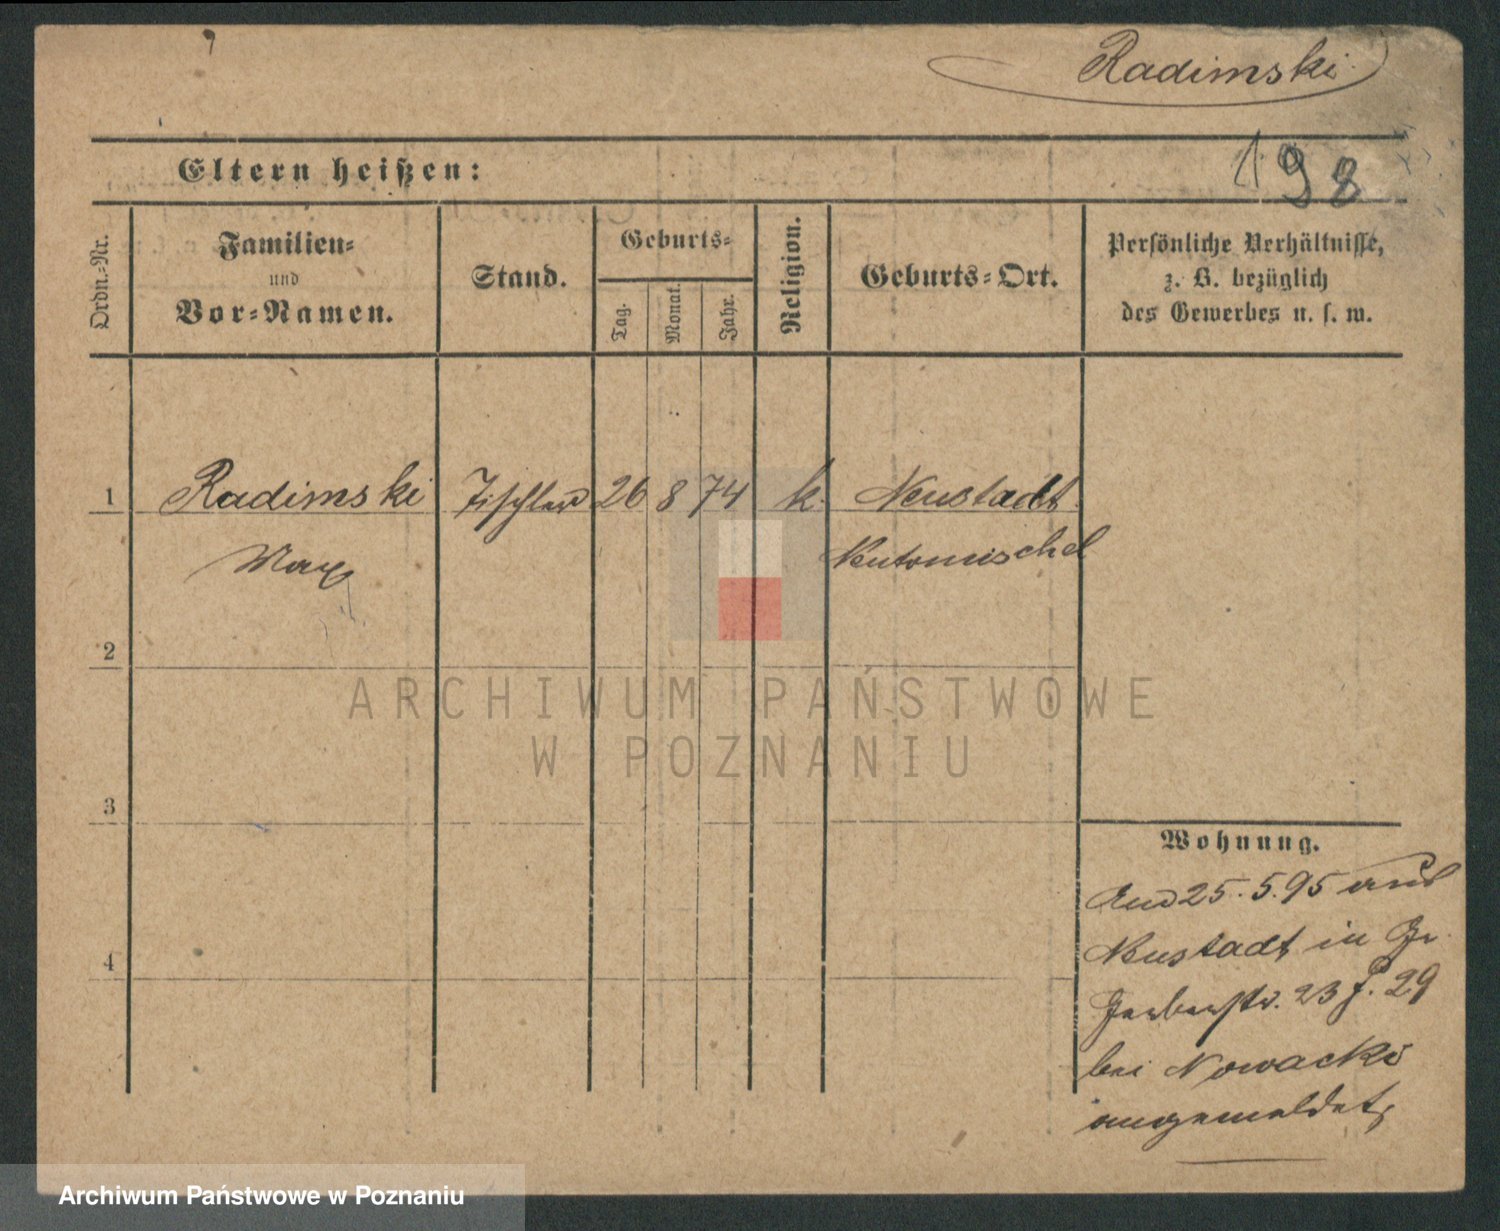 Radimski
198
Eltern heißen:
Ordn.-Nr.
Familien-
und
Vor-Namen.
Stand.
Geburts-
Tag.
Monat.
Jahr.
Religion.
Geburts-Ort.
Persönliche Verhältnisse,
z. B. bezüglich
des Gewerbes u. s. w.
1 Radimski Tischler 26 8 74 k. Neustadt
Max Neutomischel
2
3
4
Wohnung.
25.5.95 aus
Neustadt in Gr.
Gerberstr. 23 J. 29
bei Nowacki
angemeldet,
ARCHIWUM PAŃSTWOWE
W POZNANIU
Archiwum Państwowe w Poznaniu